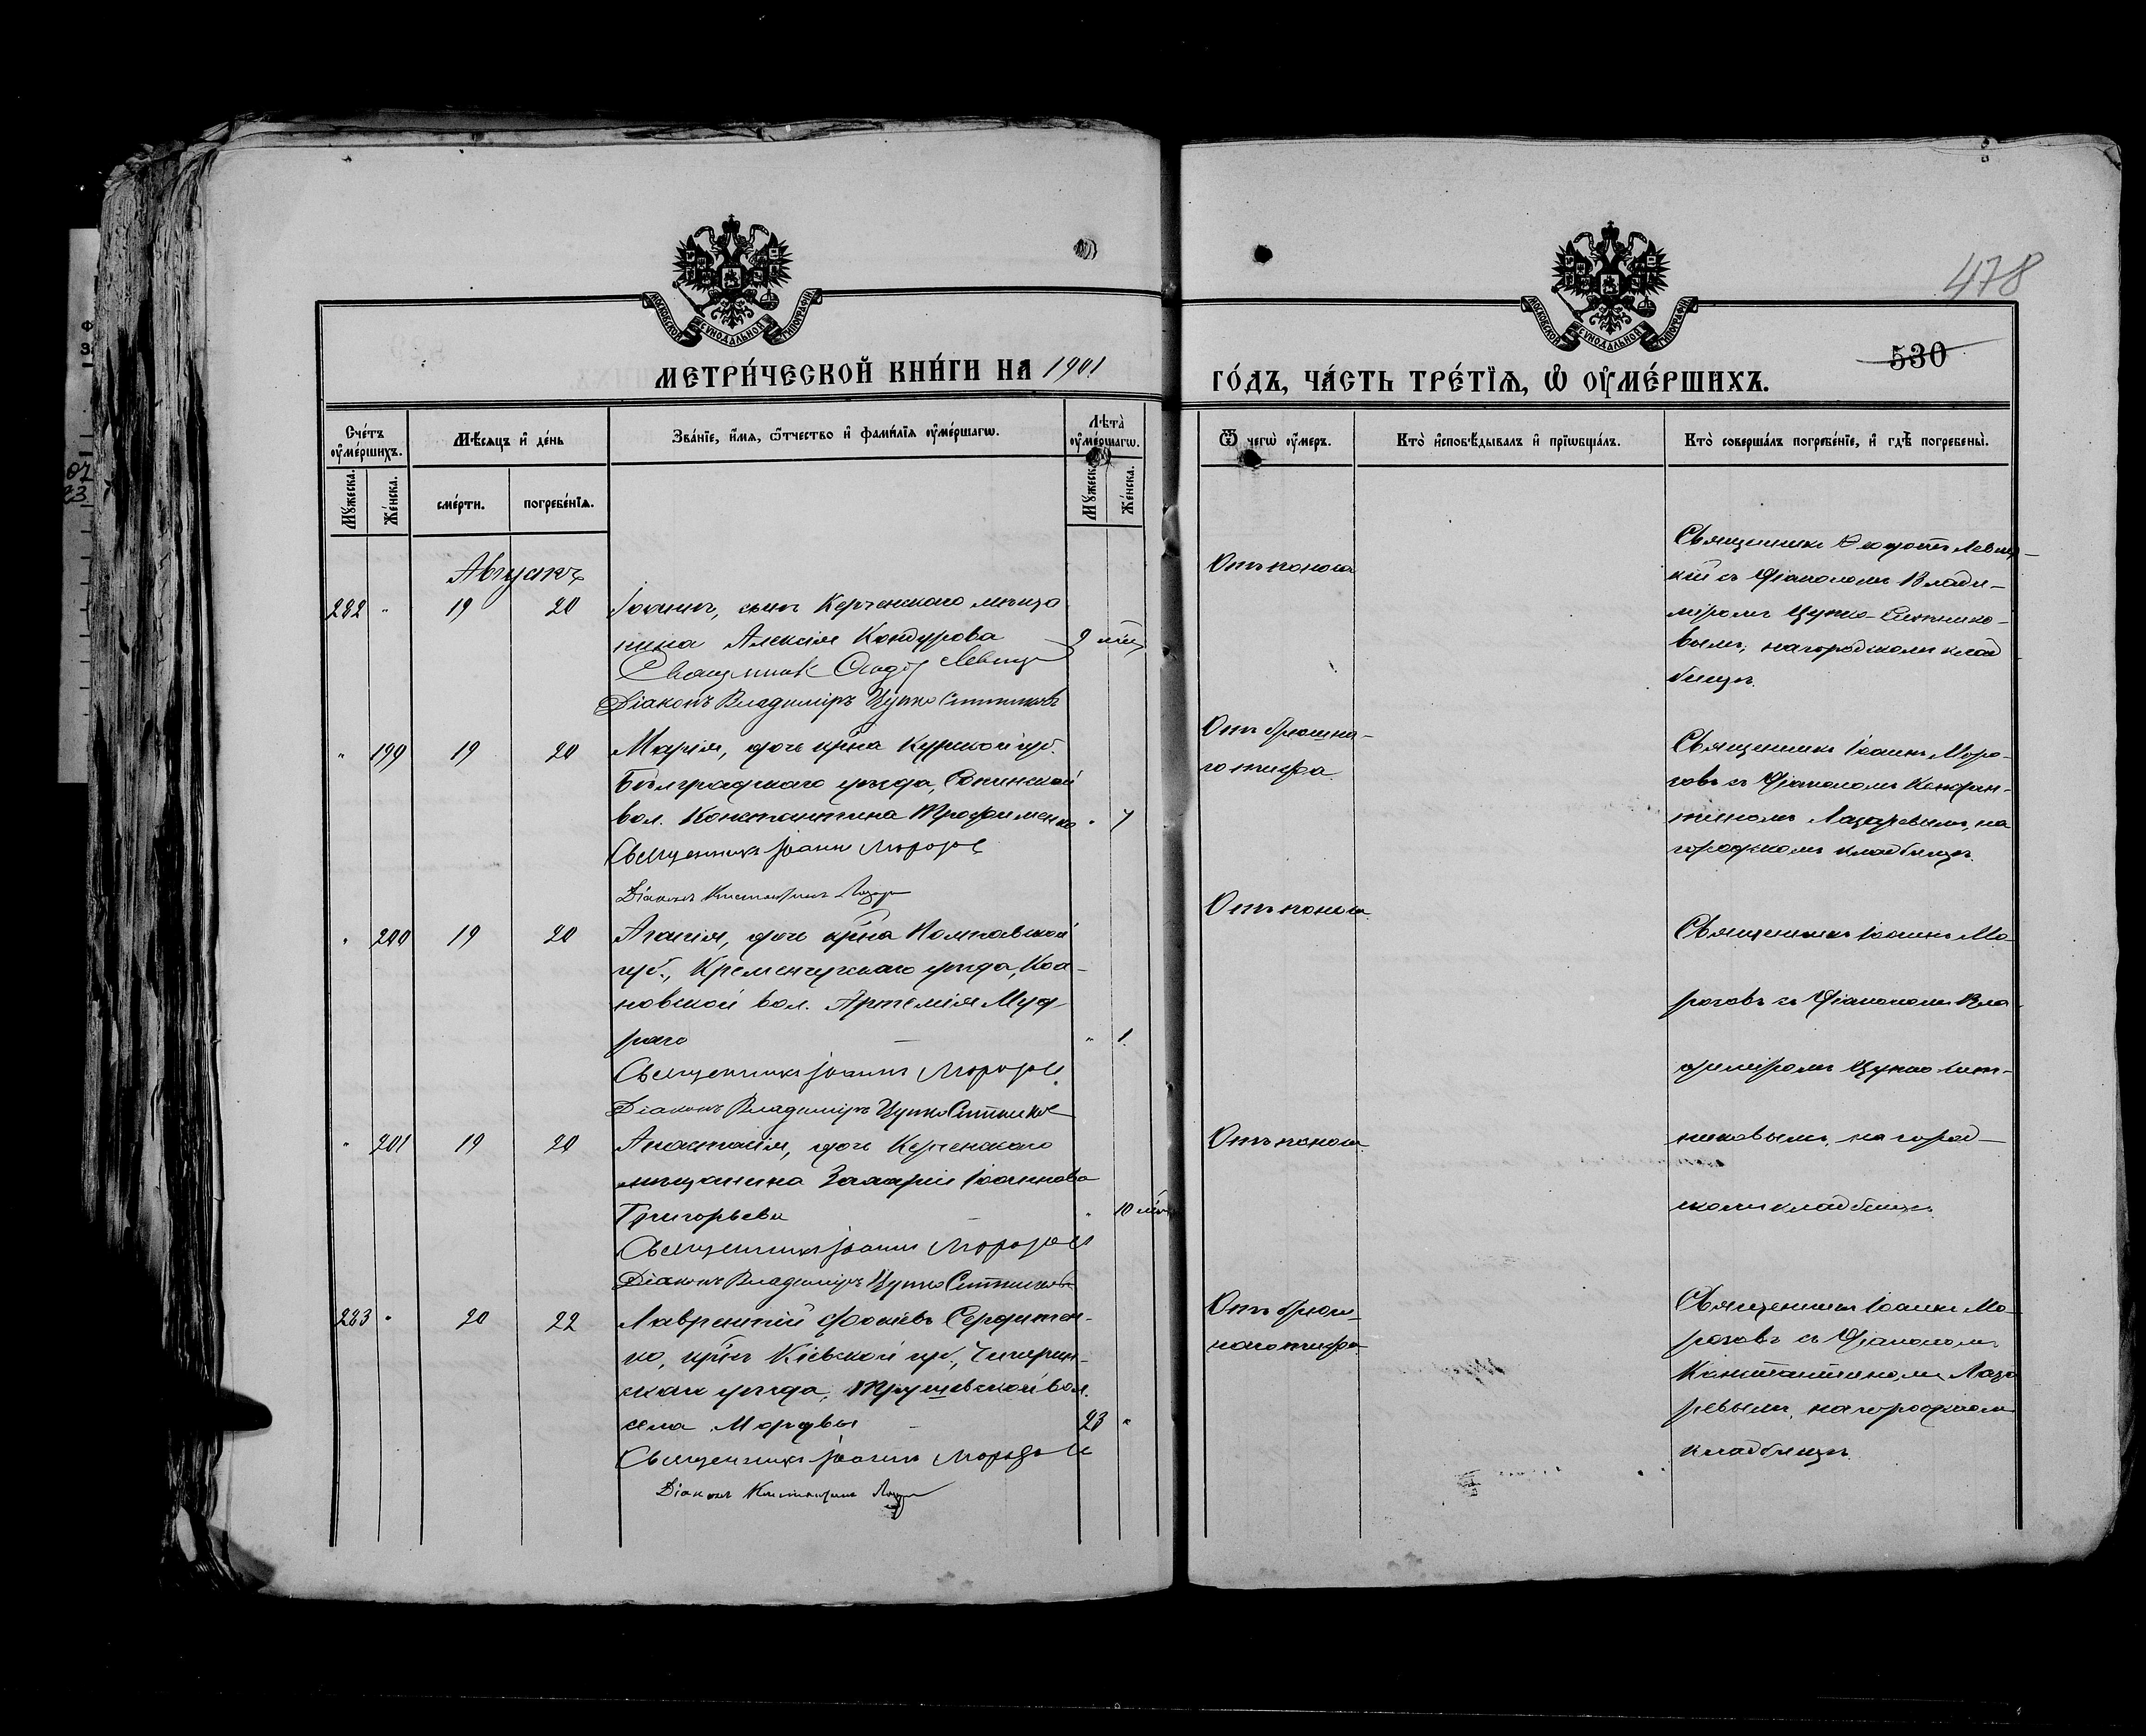 МОСКОВСКОЙ СѴНОДАЛЬНОЙ ТИПОГРАФІИ
МОСКОВСКОЙ СѴНОДАЛЬНОЙ ТИПОГРАФІИ
478
530
МЕТРИ́ЧЕСКОЙ КНИ́ГИ НА 1901
ГО́ДЪ, ЧА́СТЬ ТРЕ́ТІЯ, Ѡ ОУ҆МЕ́РШИХЪ.
Сче́тъ оу҆ме́ршихъ.
Мѣ́сяцъ и҆ де́нь
Зва́ніе, и҆́мя, ѿтчество и҆ фами́лія оу҆ме́ршагѡ.
Лѣта̀ оу҆ме́ршагѡ.
Ѿ чегѡ̀ оу҆́меръ.
Кто̀ и҆сповѣ́дывалъ и҆ прїѡбща́лъ.
Кто̀ соверша́лъ погребе́нїе, и҆ гдѣ̀ погребены̀.
Мꙋжеска.
Же́нска.
сме́рти.
погребе́нїя.
Мꙋжеска.
Же́нска.
Августъ
282 " 19 20 Іоаннъ, сынъ Керченскаго мѣща
нина Алексія Кондурова 9 мѣс
Священник Левиц
Діаконъ Владиміръ Цупко Ситниковъ
Отъ поноса
Священникъ Ѳеодотъ Левиц-
кій съ Діакономъ Влади-
міромъ Цупко-Ситнико-
вымъ, на городскомъ клад
бищѣ.
" 199 19 20 Марія, дочь кр-на Курской губ.
Бѣлградскаго уѣзда,
вол. Константина Трофименко " 7
Священникъ Іоаннъ Морозов
Діаконъ Константинъ Лазар
Отъ брюшна-
го тифа
Священникъ Іоаннъ Моро-
зовъ съ Діакономъ Констан-
тиномъ Лазаревымъ, на
городскомъ кладбищѣ.
" 200 19 20 Агапія, дочь кр-на Полтавской
губ., Кременчугскаго уѣзда,
новской вол. Артемія Муд
раго " 1.
Священникъ Іоаннъ Морозов
Діаконъ Владиміръ Цупко Ситников
Отъ поноса
Священникъ Іоаннъ Мо
розовъ съ Діакономъ Вла
диміромъ Цупко Сит-
никовымъ, на город-
скомъ кладбищѣ.
" 201 19 20 Анастасія, дочь Керченскаго
мѣщанина Захарія Іоаннова
Григорьева " 10 мѣс
Священникъ Іоаннъ Морозов
Діаконъ Владиміръ Цупко Ситниковъ
Отъ поноса
283 " 20 22 Лаврентій Фокіевъ Сердитен-
ко, кр-нъ Кіевской губ., Чигирин-
скаго уѣзда, Трушевской вол.
села Мордвы 23 "
Священникъ Іоаннъ Морозов
Діаконъ Константинъ Лазар
Отъ брюш-
наго тифа
Священникъ Іоаннъ Мо
розовъ съ Діакономъ
Константиномъ Лаза
ревымъ, на городском
кладбищѣ.